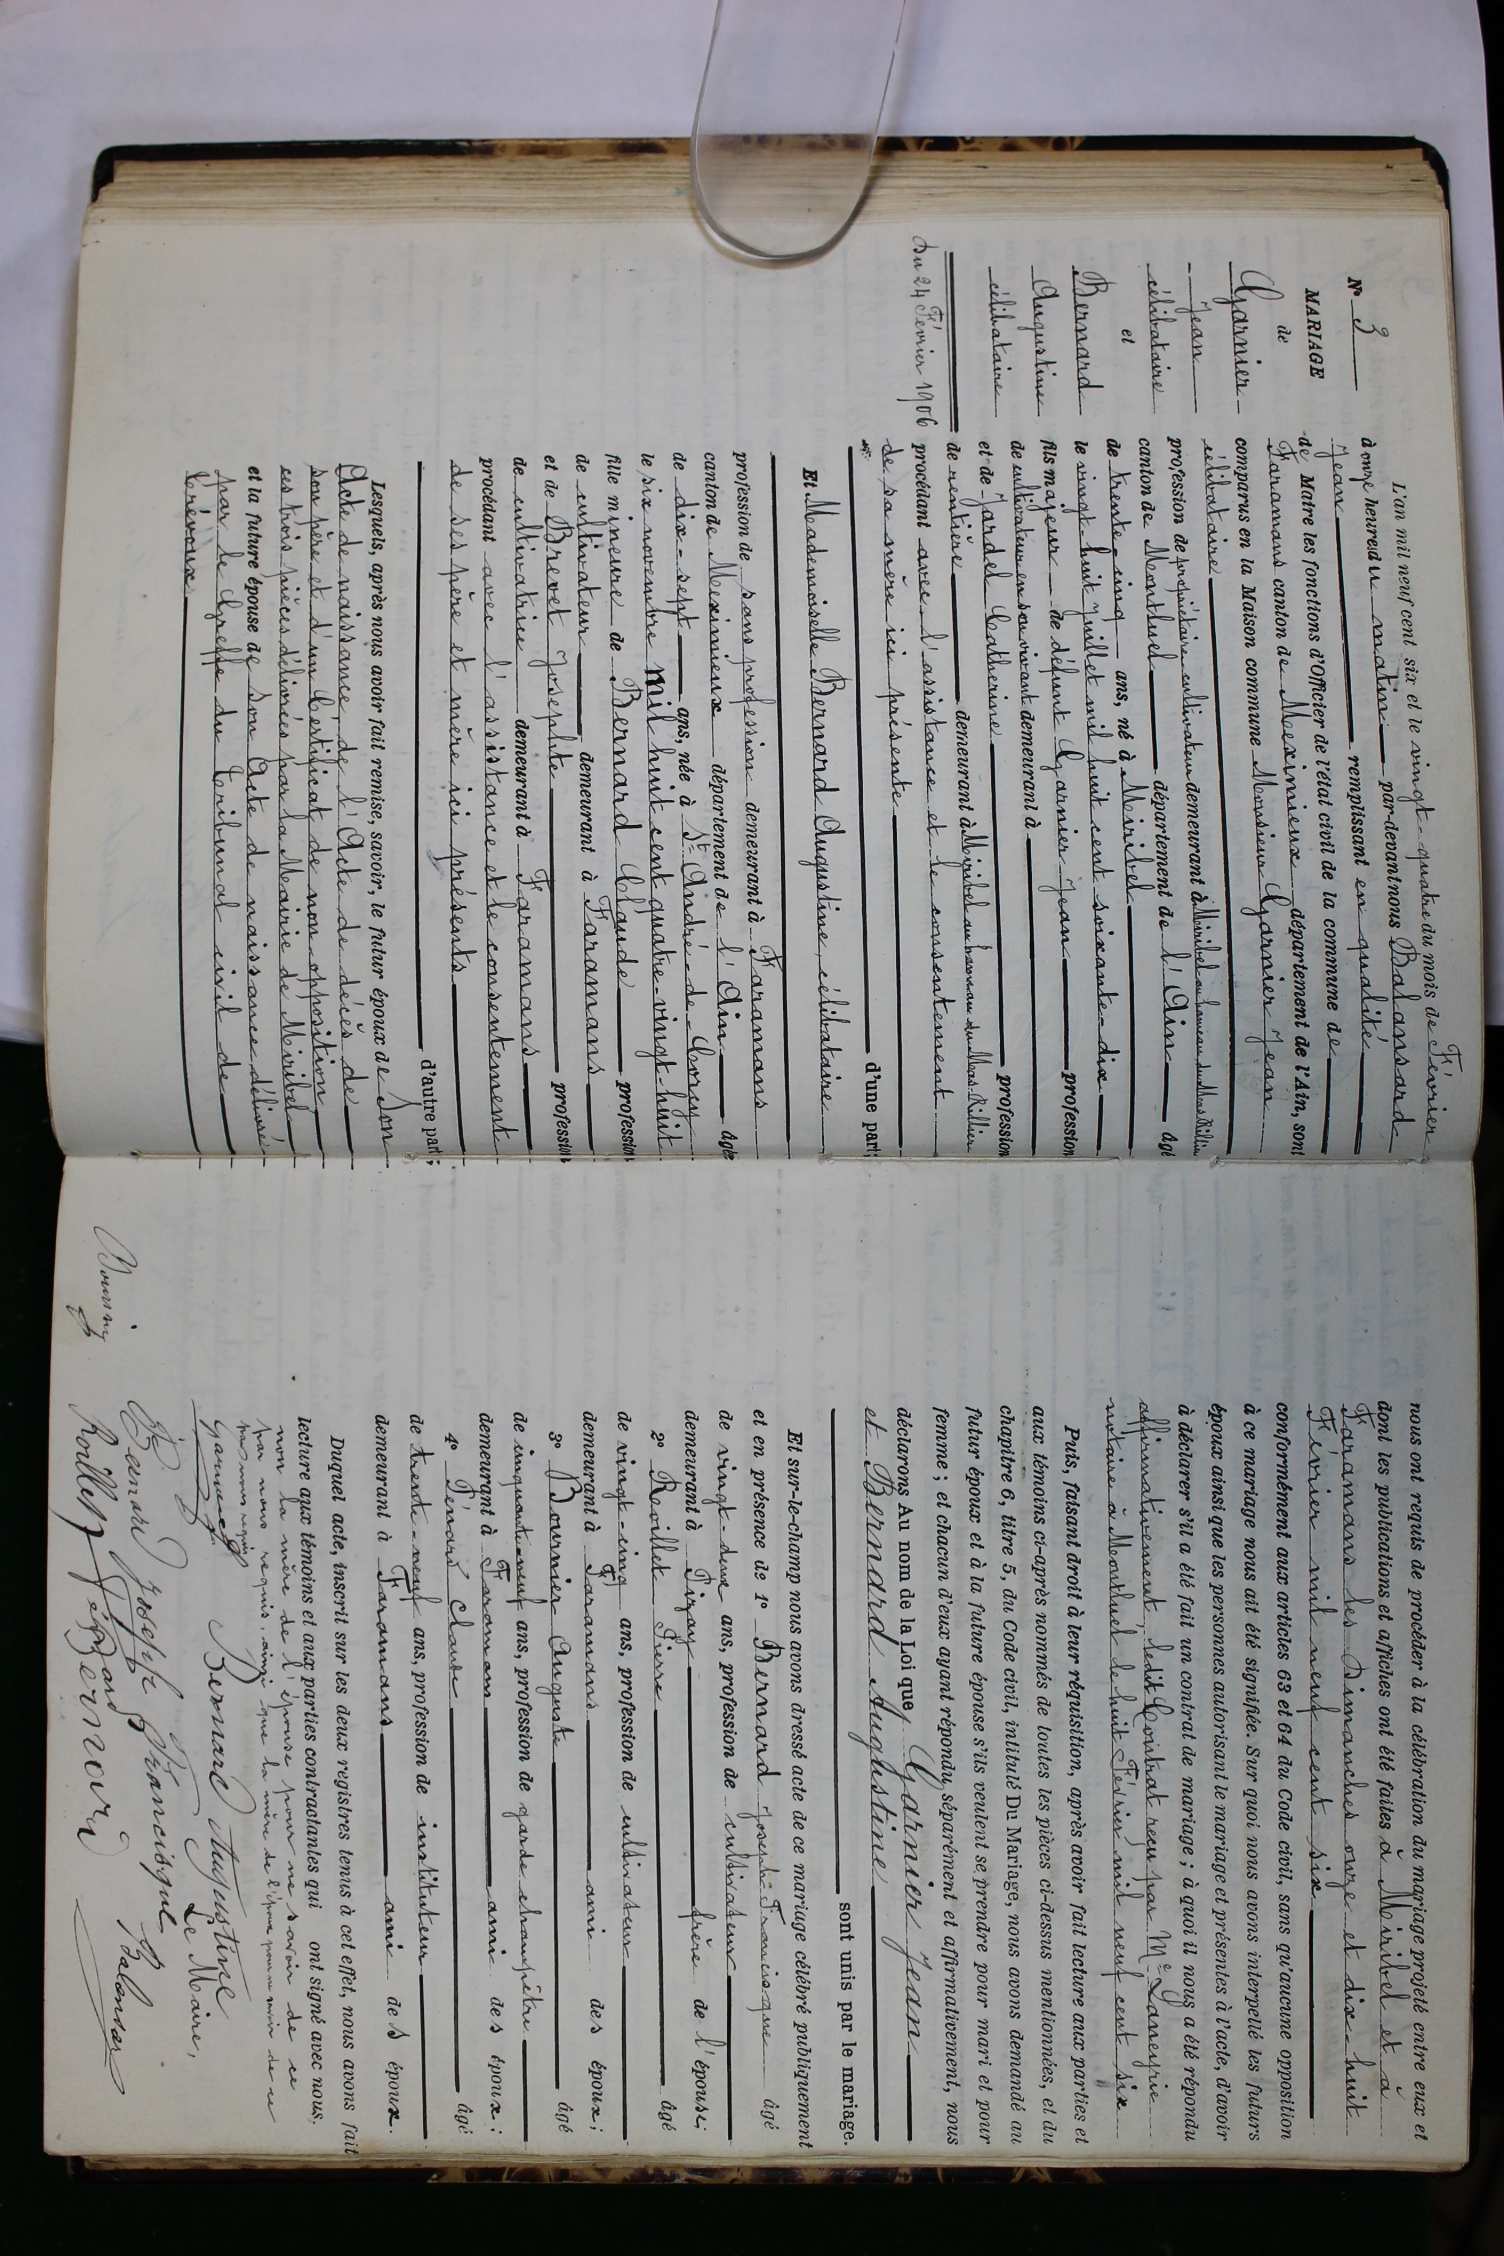 N° 3
MARIAGE
de
Garnier
Jean
célibataire
et
Bernard
Augustine
célibataire
Du 24 Février 1906
L'an mil neuf cent six et le vingt-quatre du mois de Février
à onze heures du matin par-devant nous Balansard
Jean remplissant en qualité
de Maire les fonctions d'Officier de l'état civil de la commune de
Faramans canton de Meximieux département de l'Ain, sont
comparus en la Maison commune Monsieur Garnier Jean
célibataire
profession de propriétaire cultivateur demeurant à Miribel au hameau du Mas Rillier
canton de Montluel département de l'Ain âgé
de trente-cinq ans, né à Miribel
le vingt huit Juillet mil huit cent soixante-dix
fils majeur de défunt Garnier Jean profession
de cultivateur en son vivant demeurant à
et de Jardel Catherine profession
de rentière demeurant à Miribel au hameau du Mas-Rillier
procédant avec l'assistance et le consentement
de sa mère ici présente
d'une part;
Et Mademoiselle Bernard Augustine, célibataire
profession de sans profession demeurant à Faramans
canton de Meximieux département de l'Ain âgée
de dix-sept ans, née à St André-de-Corcy
le six novembre mil huit cent quatre-vingt-huit
fille mineure de Bernard Claude profession
de cultivateur demeurant à Faramans
et de Brevet Josephte profession
de cultivatrice demeurant à Faramans
procédant avec l'assistance et le consentement
de ses père et mère ici présents
d'autre part;
Lesquels, après nous avoir fait remise, savoir, le futur époux de Son
Acte de naissance, de l'Acte de décès de
son père et d'un Certificat de non opposition,
ces trois pièces délivrées par la Mairie de Miribel,
et la future épouse de Son Acte de naissance délivré
par le Greffe du Tribunal civil de
Trévoux
nous ont requis de procéder à la célébration du mariage projeté entre eux et
dont les publications et affiches ont été faites à Miribel et à
Faramans les Dimanches onze et dix-huit
Février mil neuf cent six
conformément aux articles 63 et 64 du Code civil, sans qu'aucune opposition
à ce mariage nous ait été signifiée. Sur quoi nous avons interpellé les futurs
époux ainsi que les personnes autorisant le mariage et présentes à l'acte, d'avoir
à déclarer s'il a été fait un contrat de mariage; à quoi il nous a été répondu
affirmativement, ledit Contrat reçu par Me Laneyrie
notaire à Montluel le huit Février mil neuf cent six
Puis, faisant droit à leur réquisition, après avoir fait lecture aux parties et
aux témoins ci-après nommés de toutes les pièces ci-dessus mentionnées, et du
chapitre 6, titre 5, du Code civil, intitulé Du Mariage, nous avons demandé au
futur époux et à la future épouse s'ils veulent se prendre pour mari et pour
femme; et chacun d'eux ayant répondu séparément et affirmativement, nous
déclarons Au nom de la Loi que Garnier Jean
et Bernard Augustine
sont unis par le mariage.
Et sur-le-champ nous avons dressé acte de ce mariage célébré publiquement
et en présence de 1° Bernard Joseph-Francisque âgé
de vingt-deux ans, profession de cultivateur
demeurant à Pizay frère de l'épouse;
2° Roillet Pierre âgé
de vingt-cinq ans, profession de cultivateur
demeurant à Faramans ami des époux;
3° Bournier Auguste âgé
de cinquante-neuf ans, profession de garde champêtre
demeurant à Faramans ami des époux;
4° Pénard Claude âgé
de trente-neuf ans, profession de instituteur
demeurant à Faramans ami des époux.
Duquel acte, inscrit sur les deux registres tenus à cet effet, nous avons fait
lecture aux témoins et aux parties contractantes qui ont signé avec nous,
non la mère de l'épouse pour ne savoir de ce
par nous requis, ainsi que la mère de l'époux pour ne savoir de ce
par nous requis
Garnier Bernard Augustine Le Maire,
Bernard Joseph Francisque Balansard
Roillet Pénard Bernard